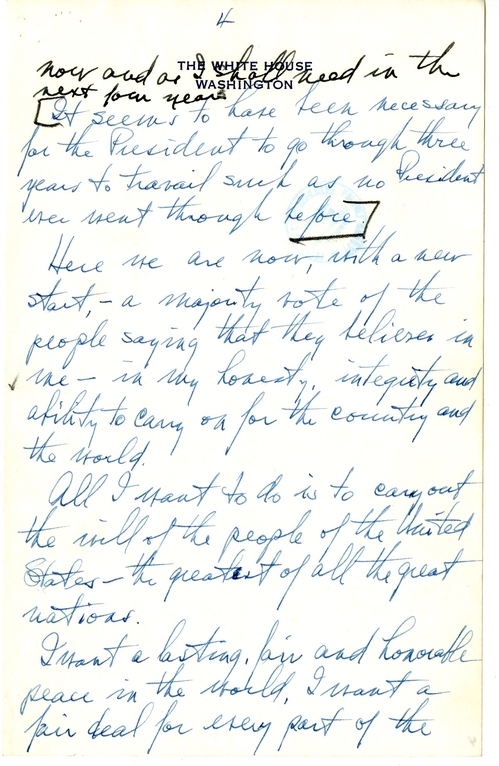 4
THE WHITE HOUSE
WASHINGTON
now and as I shall need in the
next four years
[It seems to have been necessary
for the President to go through three
years to travail such as no President
ever went through before.]
Here we are now, with a new
start, - a majority vote of the
people saying that they believe in
me - in my honesty, integrity and
ability to carry on for the country and
the world.
All I want to do is to carry out
the will of the people of the United
States - the greatest of all the great
nations.
I want a lasting, fair and honorable
peace in the world, I want a
fair deal for every part of the